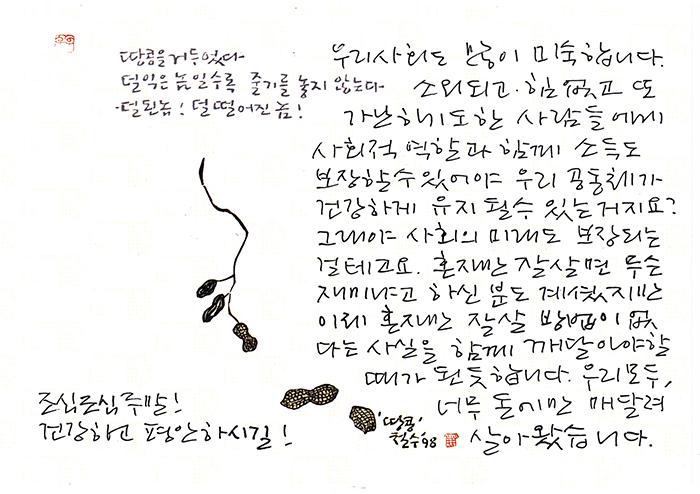 땅콩을 거두었다-
덜익은 놈일수록 줄기를 놓지 않는다-
덜된놈! 덜 떨어진 놈!
우리사회도 분명이 미숙합니다.
소외되고·힘없고 또
가난하기도한 사람들에게
사회적 역할과 함께 소득도
보장할수있어야 우리 공동체가
건강하게 유지될수 있는거지요?
그래야 사회의 미래도 보장되는
걸테고요. 혼자만 잘살면 무슨
재미냐고 하신 분도 계셨지만
이제 혼자만 잘살 방법이 없
다는 사실을 함께 깨달아야할
때가 된듯합니다. 우리모두,
너무 돈에만 매달려
살아왔습니다.
조심조심주말!
건강하고 평안하시길!
'땅콩'
철수'98